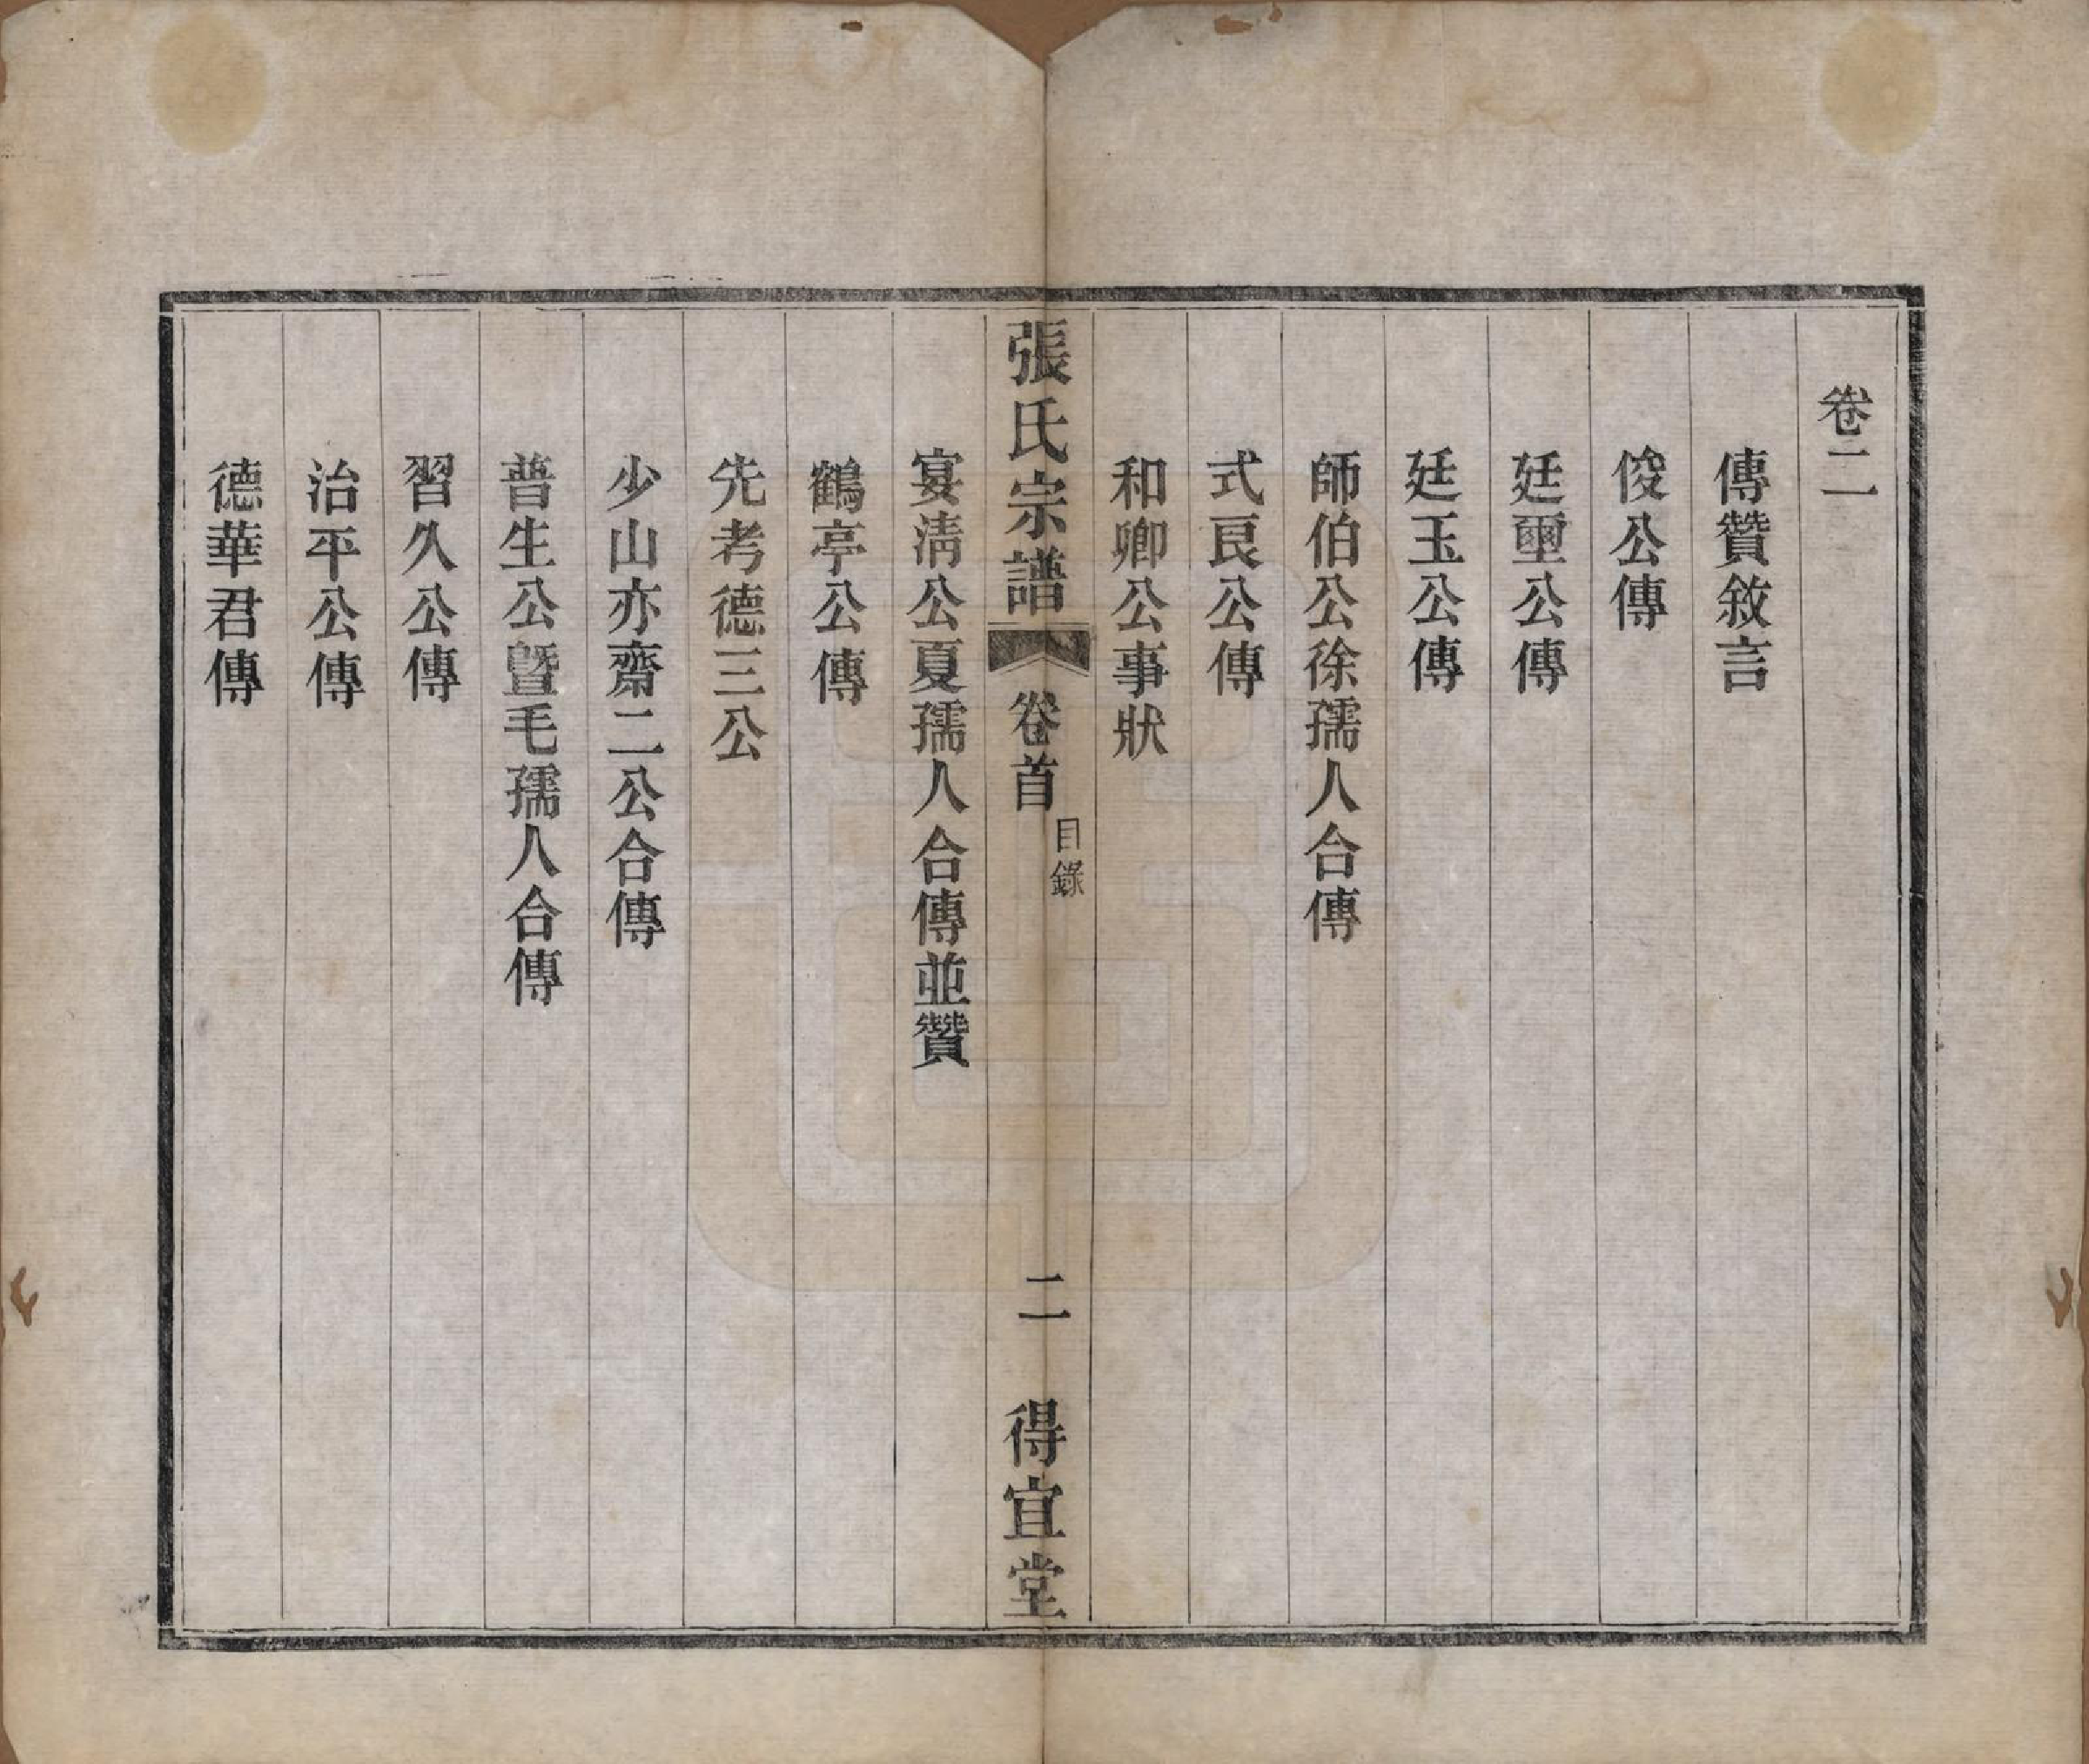 卷二
傳贊敘言
俊公傳
廷璽公傳
廷玉公傳
師伯公徐孺人合傳
式良公傳
和卿公事狀
張氏宗譜
卷首
目錄
二
得宜堂
宴清公夏孺人合傳並贊
鶴亭公傳
先考德三公
少山亦齋二公合傳
普生公暨毛孺人合傳
習久公傳
治平公傳
德華君傳